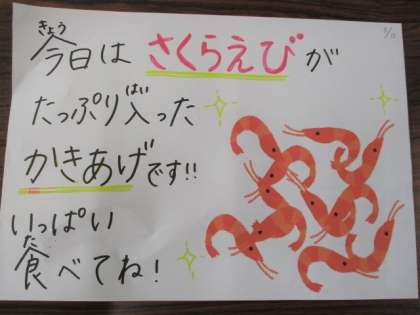 きょう
今日は さくらえびが
たっぷり入った
かきあげです!!
いっぱい
食べてね!